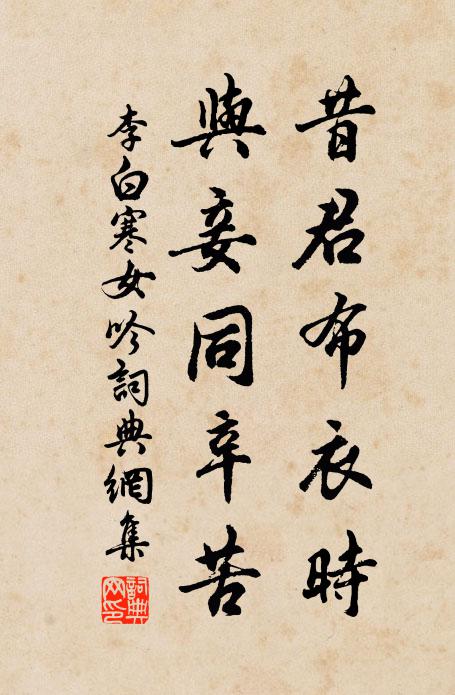 昔君布衣時
與妾同辛苦
李白寒女吟詞典網集
詞典網印